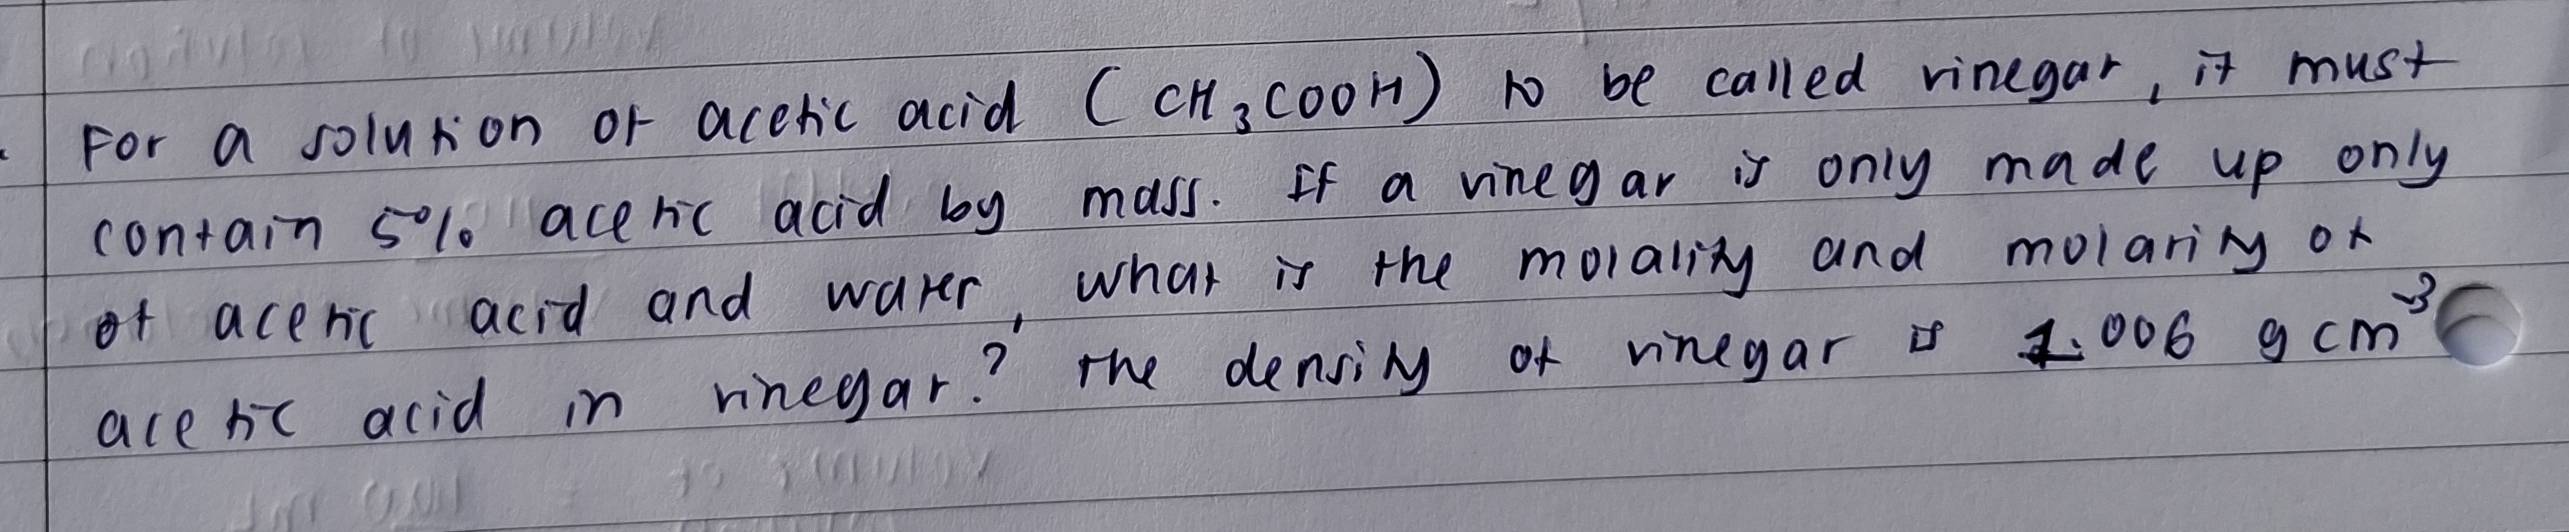 For a solution of acetic acid (CH₃COOH) to be called vinegar, it must
contain 5% acetic acid by mass. If a vinegar is only made up only
of acetic acid and water, what is the molality and molarity of
acetic acid in vinegar? The density of vinegar is 1.006 g cm⁻³